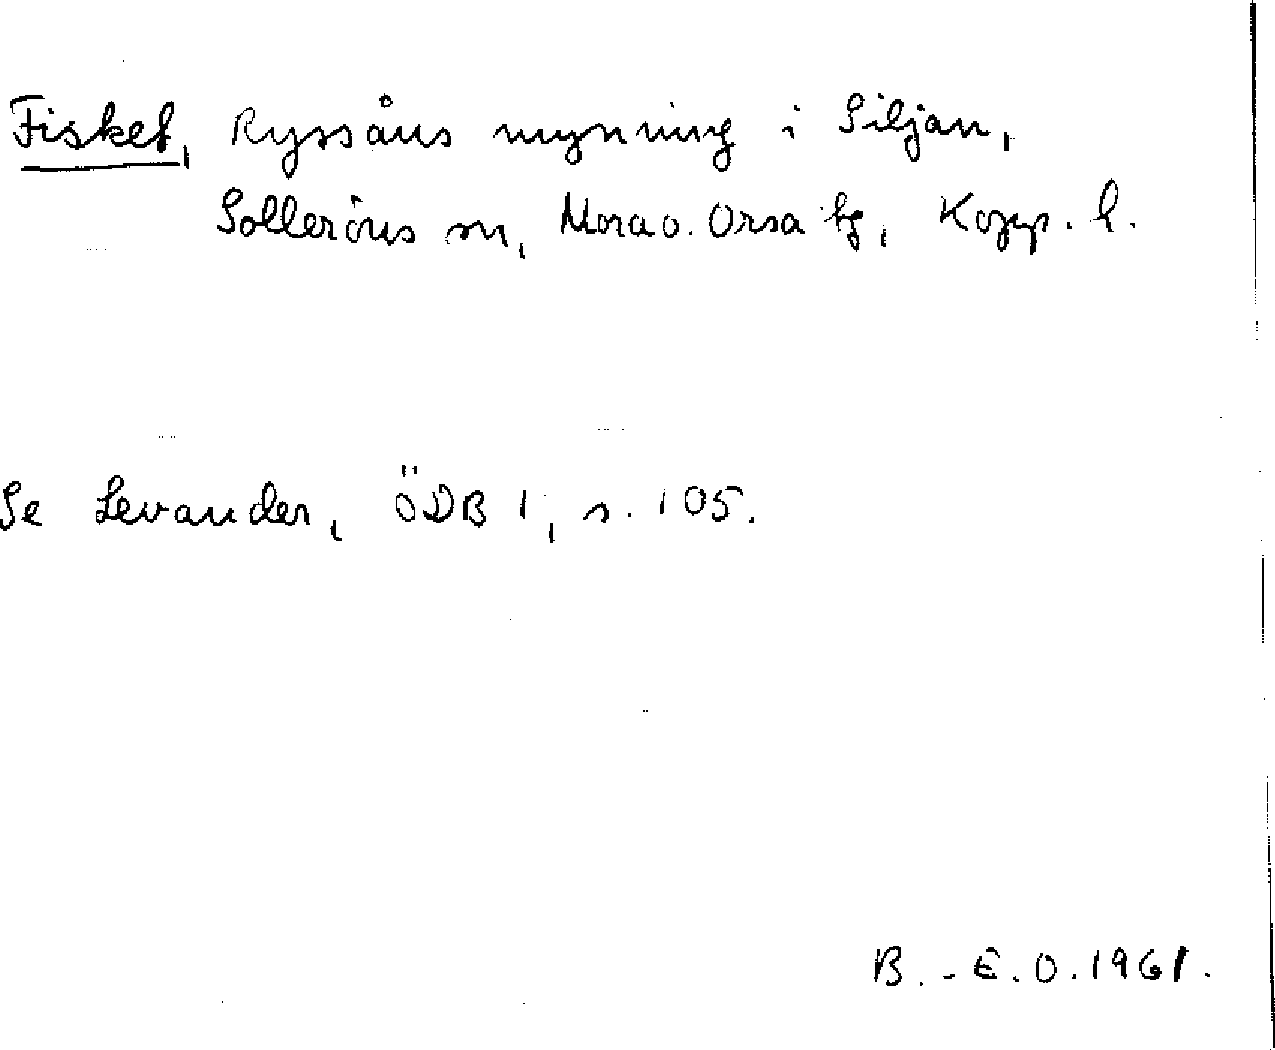 Fisket, Ryssåns mynning i Siljan,
Solleröns sn, Mora o. Orsa tg, Kopp. l.
Se Levander, ÖDB I, s. 105.
B.-E.O. 1961.